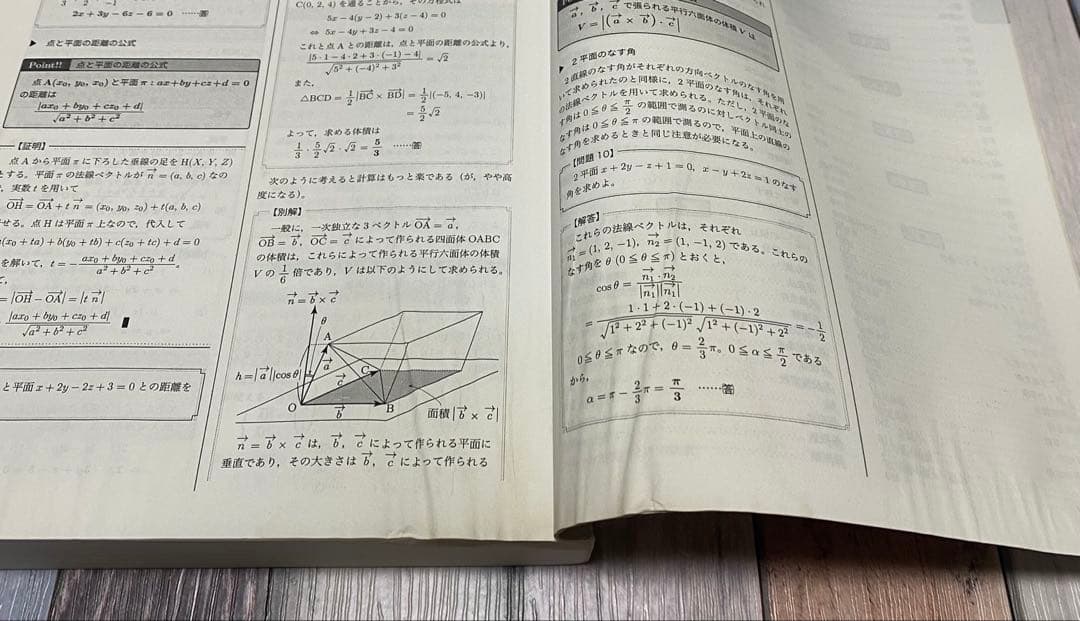 2x+3y−6z−6=0 ……答
▶ 点と平面の距離の公式
Point!! 点と平面の距離の公式
点A(x₀, y₀, z₀)と平面π:ax+by+cz+d=0
の距離は
|ax₀+by₀+cz₀+d|
√(a²+b²+c²)
【証明】
点Aから平面πに下ろした垂線の足をH(X, Y, Z)
とする。平面πの法線ベクトルが n→=(a, b, c)なの
実数tを用いて
OH→=OA→+t n→=(x₀, y₀, z₀)+t(a, b, c)
せる。点Hは平面π上なので，代入して
(x₀+ta)+b(y₀+tb)+c(z₀+tc)+d=0
を解いて，t=−(ax₀+by₀+cz₀+d)/(a²+b²+c²)。
=|OH→−OA→|=|t n→|
|ax₀+by₀+cz₀+d|
√(a²+b²+c²) ∎
と平面x+2y−2z+3=0との距離を
C(0, 2, 4)を通ることから，その方程式は
5x−4(y−2)+3(z−4)=0
⇔ 5x−4y+3z−4=0
これと点Aとの距離は，点と平面の距離の公式より，
|5・1−4・2+3・(−1)−4|/√(5²+(−4)²+3²)=√2
また，
△BCD=1/2|BC→×BD→|=1/2|(−5, 4, −3)|
=5/2√2
よって，求める体積は
1/3・5/2√2・√2=5/3 ……答
次のように考えると計算はもっと楽である(が，やや高
度になる)。
【別解】
一般に，一次独立な3ベクトルOA→=a→，
OB→=b→，OC→=c→によって作られる四面体OABC
の体積は，これらによって作られる平行六面体の体積
Vの1/6倍であり，Vは以下のようにして求められる。
n→=b→×c→
θ
A
a→
h=|a→||cosθ|
c→
C
O
b→
B
面積|b→×c→|
n→=b→×c→は，b→，c→によって作られる平面に
垂直であり，その大きさはb→，c→によって作られる
a→，b→，c→で張られる平行六面体の体積Vは
V=|(a→×b→)・c→|
▶ 2平面のなす角
2直線のなす角がそれぞれの方向ベクトルのなす角を用
いて求められたのと同様に，2平面のなす角は，それぞれ
の法線ベクトルを用いて求められる。ただし，2平面のな
す角は0≦θ≦π/2の範囲で測るのに対しベクトル同士の
なす角は0≦θ≦πの範囲で測るので，平面上の直線の
なす角を求めるときと同じ注意が必要になる。
【問題10】
2平面x+2y−z+1=0，x−y+2z=1のなす
角を求めよ。
【解答】
これらの法線ベクトルは，それぞれ
n₁→=(1, 2, −1)，n₂→=(1, −1, 2)である。これらの
なす角をθ(0≦θ≦π)とおくと，
cosθ=n₁→・n₂→/|n₁→||n₁→|
=(1・1+2・(−1)+(−1)・2)/(√(1²+2²+(−1)²)√(1²+(−1)²+2²))=−1/2
0≦θ≦πなので，θ=2/3π。0≦α≦π/2である
から，
α=π−2/3π=π/3 ……答